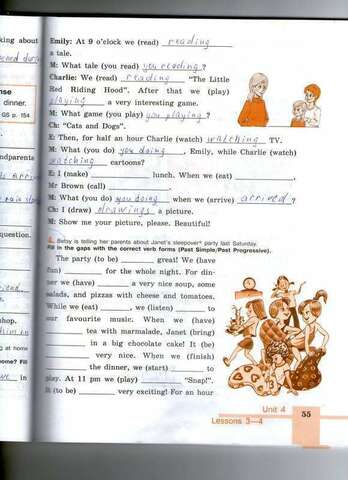 king about
nse
dinner.
GS p. 154
ndparents
question.
hop.
g at home
ome? Fill
in
Emily: At 9 o'clock we (read) reading
a tale.
M: What tale (you read) you reading?
Charlie: We (read) reading "The Little
Red Riding Hood". After that we (play)
playing a very interesting game.
M: What game (you play) you playing?
Ch: "Cats and Dogs".
E: Then, for half an hour Charlie (watch) watching TV.
M: What (you do) you doing, Emily, while Charlie (watch)
watching cartoons?
E: I (make) lunch. When we (eat) ,
Mr Brown (call) .
M: What (you do) you doing when we (arrive) arrived?
Ch: I (draw) drawings a picture.
M: Show me your picture, please. Beautiful!
Betsy is telling her parents about Janet's sleepover* party last Saturday.
Fill in the gaps with the correct verb forms (Past Simple/Past Progressive).
The party (to be) great! We (have
fun) for the whole night. For din-
ner we (have) a very nice soup, some
salads, and pizzas with cheese and tomatoes.
While we (eat) , we (listen) to
our favourite music. When we (have)
tea with marmalade, Janet (bring)
in a big chocolate cake! It (be)
very nice. When we (finish)
the dinner, we (start) to
play. At 11 pm we (play) "Snap!".
It (to be) very exciting! For an hour
Unit 4
Lessons 3—4
55